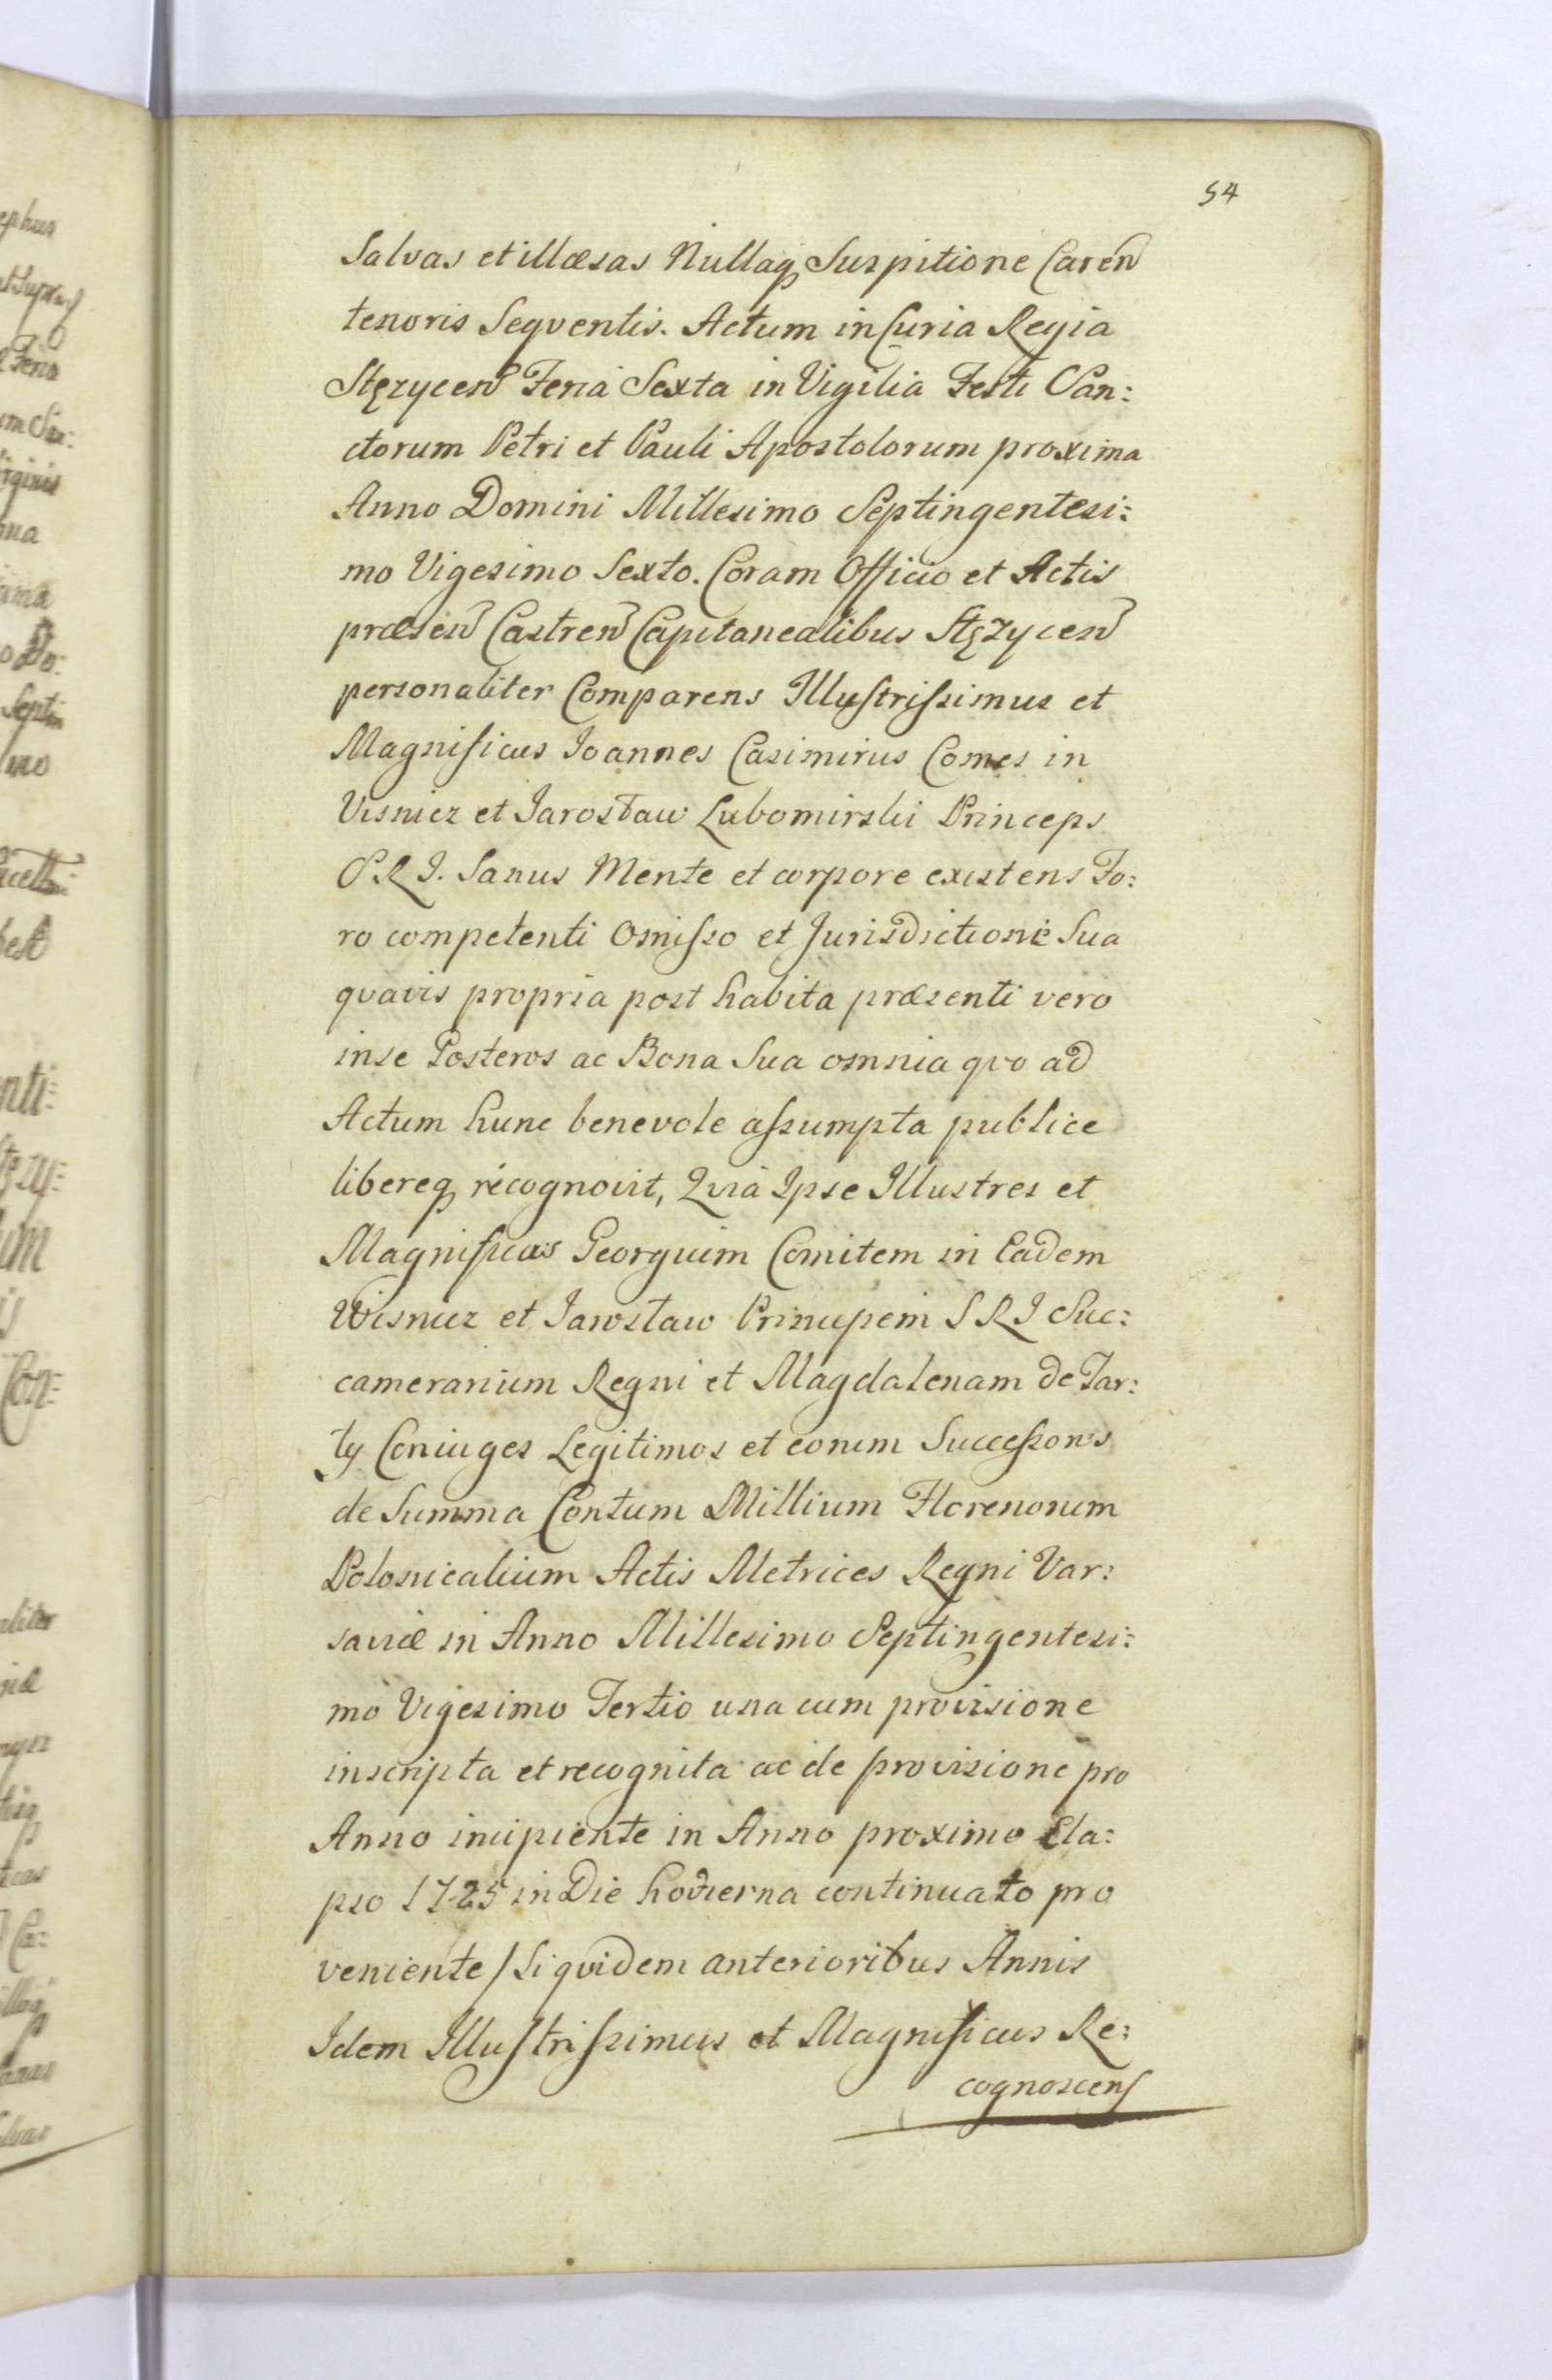 54
Salvas et illæsas Nullaq Suspitione Caren
tenoris Seqventis. Actum in Curia Regia
Stęzycen Feria Sexta in Vigilia Festi San:
ctorum Petri et Pauli Apostolorum proxima
Anno Domini Millesimo Septingentesi:
mo Vigesimo Sexto. Coram Officio et Actis
præsen Castren Capitanealibus Stęzycen
personaliter Comparens Illustrissimus et
Magnificus Ioannes Casimirus Comes in
Visnicz et Jarosław Lubomirski Princeps
S R J. Sanus Mente et corpore existens Fo:
ro competenti omisso et Jurisdictione Sua
qvavis propria post habita præsenti vero
in se Posteros ac Bona Sua omnia qvo ad
Actum hunc benevole assumpta publice
libereq recognovit, Qvia Ipse Illustres et
Magnificos Georgium Comitem in Eadem
Wisnicz et Jarosław Principem S R J Suc:
camerarium Regni et Magdalenam de Tar:
ły Coniuges Legitimos et eorum Successores
de Summa Centum Millium Florenorum
Polonicalium Actis Metrices Regni Var:
saviæ in Anno Millesimo Septingentesi:
mo Vigesimo Tertio una cum provisione
inscripta et recognita ac de provisione pro
Anno incipiente in Anno proximo Ela:
pso 1725 in Die hodierna continuato pro
veniente / Siqvidem anterioribus Annis
Idem Illustrissimus et Magnificus Re:
cognoscens